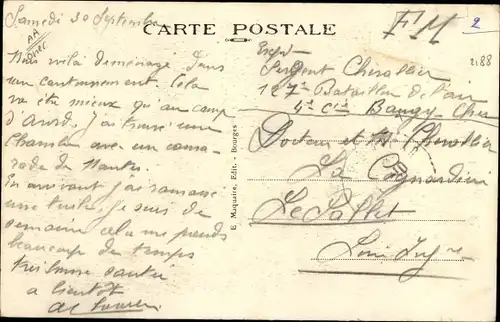 Samedi 30 Septembre
CARTE POSTALE
F M
2
2.88
Nous voilà déménagé dans
un cantonnement. Cela
va être mieux qu'au camp
d'Avord. J'ai trouvé une
chambre avec un cama-
rade de Nantes.
En arrivant j'ai ramassé
une tuile. Je suis de
semaine cela me prends
beaucoup de temps
très bonne santé
a bientôt
E. Maquaire, Edit. - Bourges
Exp.
Sergent Chevallier
127e Bataillon de l'air
4e Cie Baugy - Cher
Docteur et Me Chevallier
La
Le Pallet
Loire Infre